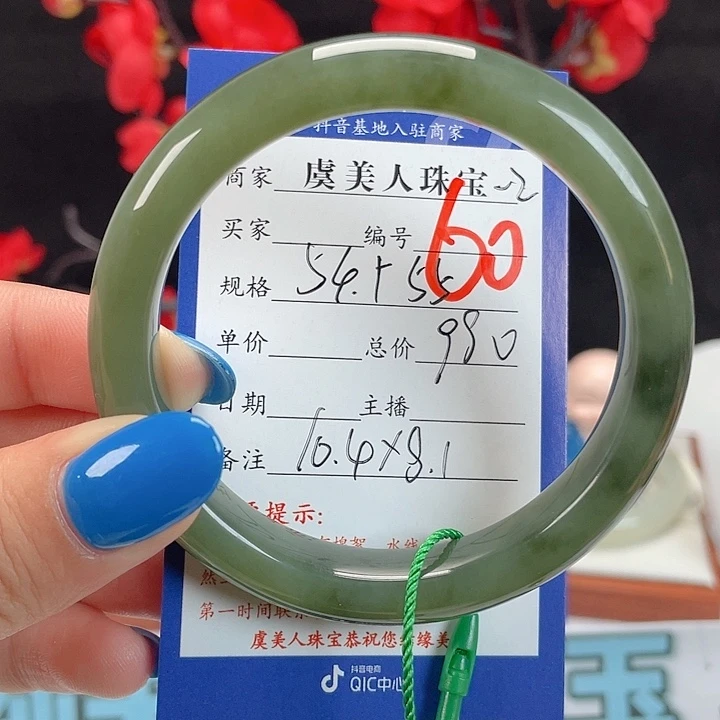 抖音基地入驻商家
商家 虞美人珠宝
60
买家 编号
规格 54.+ 55
单价 总价 980
日期 主播
备注 10.4×8.1
提示:
水线
第一时间联
虞美人珠宝恭祝您 缘美
抖音电商
QIC中心
玉